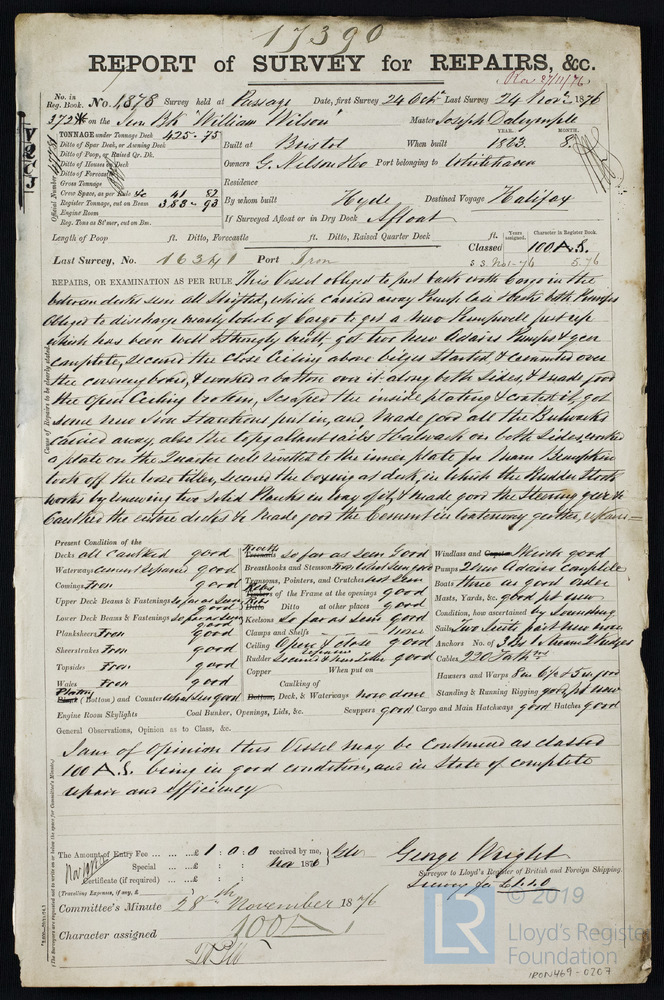 17390
REPORT of SURVEY for REPAIRS, &c.
27/11/76
No. in Reg. Book. No. 1,878 Survey held at Passage Date, first Survey 24 Octr Last Survey 24 Novr 1876
372 on the Iron Bk "William Wilson" Master Joseph Dalrymple
TONNAGE under Tonnage Deck 425.75
Ditto of Spar Deck, or Awning Deck
Ditto of Poop, or Raised Qr. Dk.
Ditto of Houses on Deck
Ditto of Forecastle
Gross Tonnage
Crew Space, as per Rule 41 82
Register Tonnage, cut on Beam 383 93
Engine Room
Reg. Tons as St'mer, cut on Bm.
Official Number
Built at Bristol When built YEAR. MONTH. 8
Owners G. Nelson & Co Port belonging to Whitehaven
Residence
By whom built Hyde Destined Voyage Halifax
If Surveyed Afloat or in Dry Dock Afloat
Length of Poop ft. Ditto, Forecastle ft. Ditto, Raised Quarter Deck ft. Years assigned. Character in Register Book.
Classed 100 A.
Last Survey, No. 16341 Port Iron 5.76
REPAIRS, OR EXAMINATION AS PER RULE This Vessel obliged to put back with Cargo in the
between decks seen all shifted, which carried away Pump Case & broke both Pumps
obliged to discharge nearly whole of Cargo to get a new Pumpwell put up
which has been well & strongly built, got two new Adairs Pumps & gear
complete, secured the close Ceiling above bilges started & cemented over
the covering board, & worked a batten over it along both sides, & made good
the open Ceiling broken, scraped the inside plating & coated it, got
some new Iron Stanchions put in, and made good all the Bulwarks
carried away, also the topgallant rails & bulwark on both sides, worked
a plate on the Quarter well rivetted to the inner plate for Main Bumpkin
took off the loose tiller, secured the boxing at deck, in which the Rudder Stock
works by renewing two solid Planks in way of it, & made good the Steering gear &
Caulked the entire decks & made good the Cement in waterway gutter,
Cause of Repairs to be clearly stated.
Present Condition of the
Decks all caulked good
Waterways cement repaired good
Comings Iron good
Upper Deck Beams & Fastenings so far as seen good
Lower Deck Beams & Fastenings so far as seen good
Planksheers Iron good
Sheerstrakes Iron good
Topsides Iron good
Wales Iron good
Plating (Bottom) and Counter what seen good
Engine Room Skylights
so far as seen Good
Breasthooks and Stemson Iron what seen good
Transoms, Pointers, and Crutches not seen
of the Frame at the openings good
Ditto at other places good
Keelsons so far as seen good
Clamps and Shelfs none
Ceiling Open & close good
Rudder secured & new Tiller good
Copper When put on
Caulking of Bottom, Deck, & Waterways now done
Coal Bunker, Openings, Lids, &c. Scuppers good Cargo and Main Hatchways good Hatches good
Windlass and Capstan Winch good
Pumps 2 New Adairs complete
Boats three in good order
Masts, Yards, &c. good pt new
Condition, how ascertained by sounding
Sails Two Suits part new now
Anchors No. of 3 Bs 1 Stream 2 Kedges
Cables 230 Fathms
Hawsers and Warps 8 in 6½ & 5 in good
Standing & Running Rigging good pt new
General Observations, Opinion as to Class, &c.
I am of Opinion this Vessel may be Continued as classed
100 A. being in good condition, and in State of complete
repair and efficiency
The Amount of Entry Fee ... ... £ 1.0.0 received by me,
Special ... ... £ Nov 1876
Certificate (if required) ... £
(Travelling Expenses, if any, £ )
George Wright
Surveyor to Lloyd's Register of British and Foreign Shipping.
Committee's Minute 28th November 1876
Character assigned 100A1
© 2019
LR
Lloyd's Register
Foundation
IRON469-0207